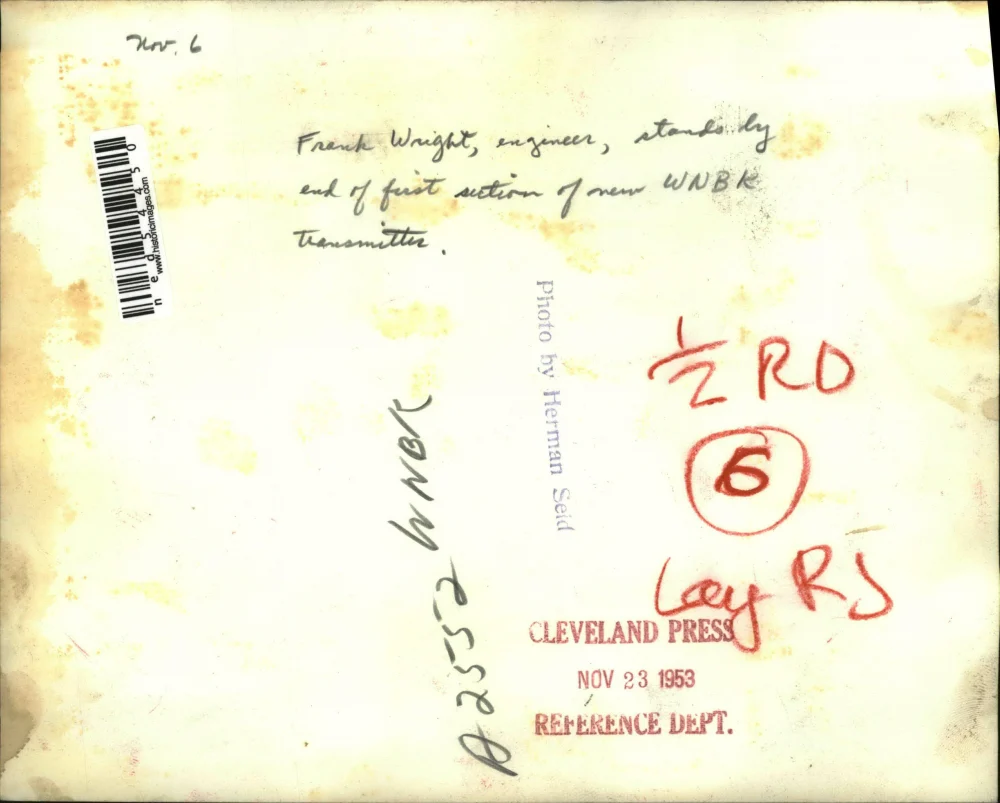 Nov. 6
Frank Wright, engineer, stands by
end of first section of new WNBK
transmitter.
www.historicimages.com
ned54450
Photo by Herman Seid
1/2 RD
6
RJ
A2552 WNBK
CLEVELAND PRESS
NOV 23 1953
REFERENCE DEPT.